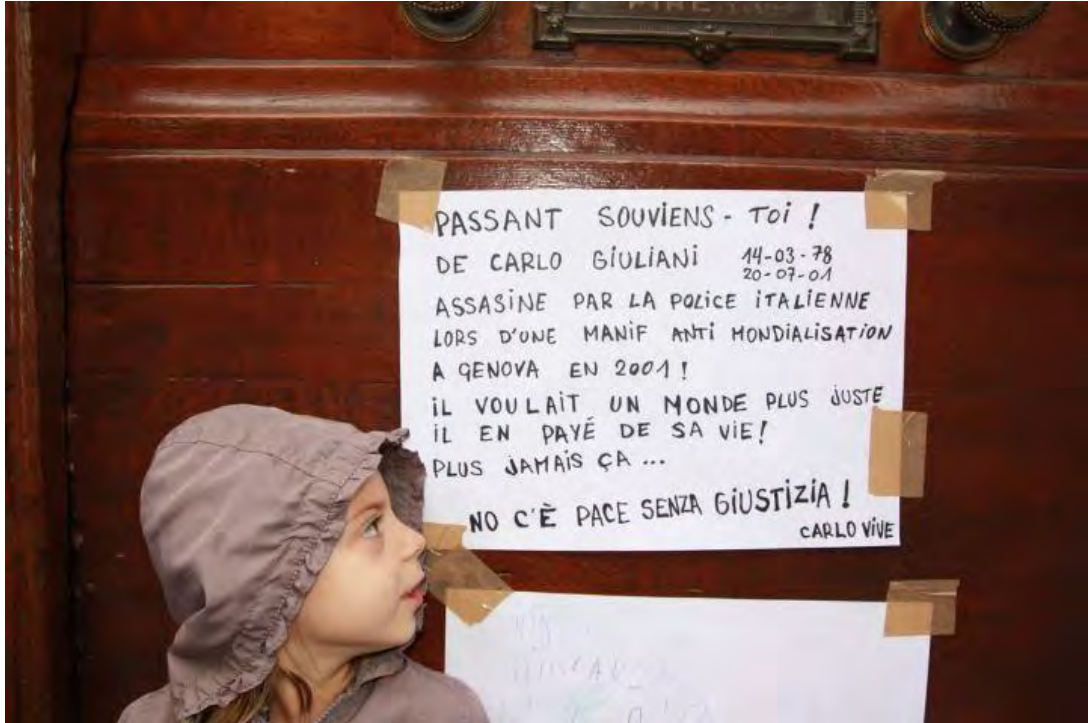 PASSANT SOUVIENS - Toi !
DE CARLO GiULiANi 14-03-78
20-07-01
ASSASiNE PAR LA POLiCE iTALiENNE
LORS D'UNE MANiF ANTi MONDiALiSATiON
A GENOVA EN 2001 !
iL VOULAiT UN MONDE PLUS JUSTE
iL EN PAYÉ DE SA ViE!
PLUS JAMAiS ÇA ...
NO C'È PACE SENZA GiUSTiZiA !
CARLO ViVE